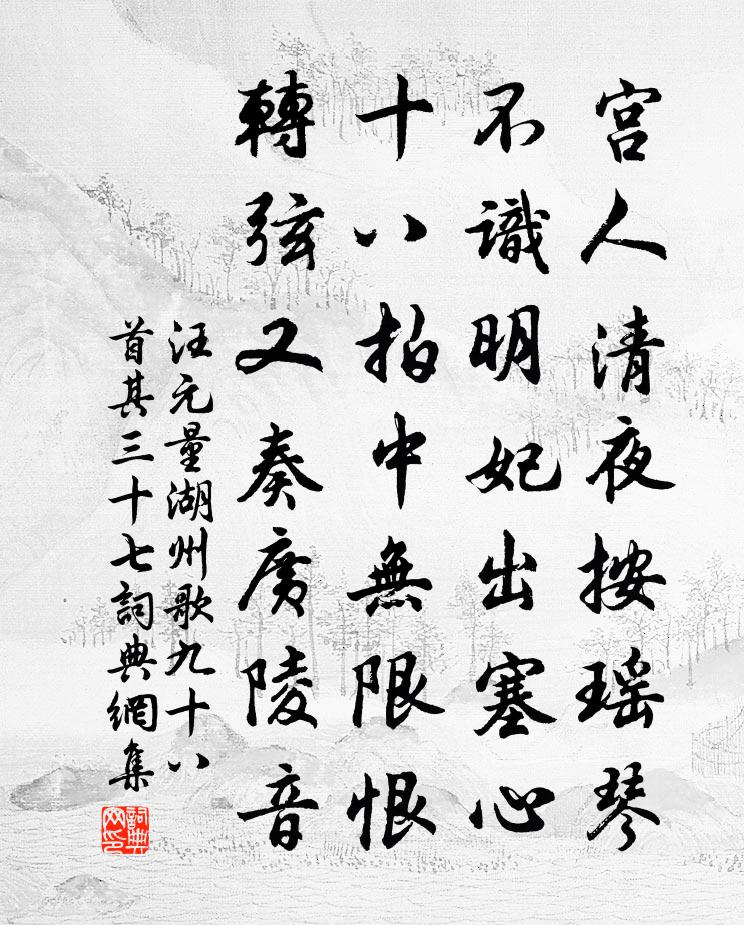 宫人清夜按瑶琴
不識明妃出塞心
十八拍中無限恨
轉弦又奏廣陵音
汪元量湖州歌九十八
首其三十七詞典網集
詞典
网印